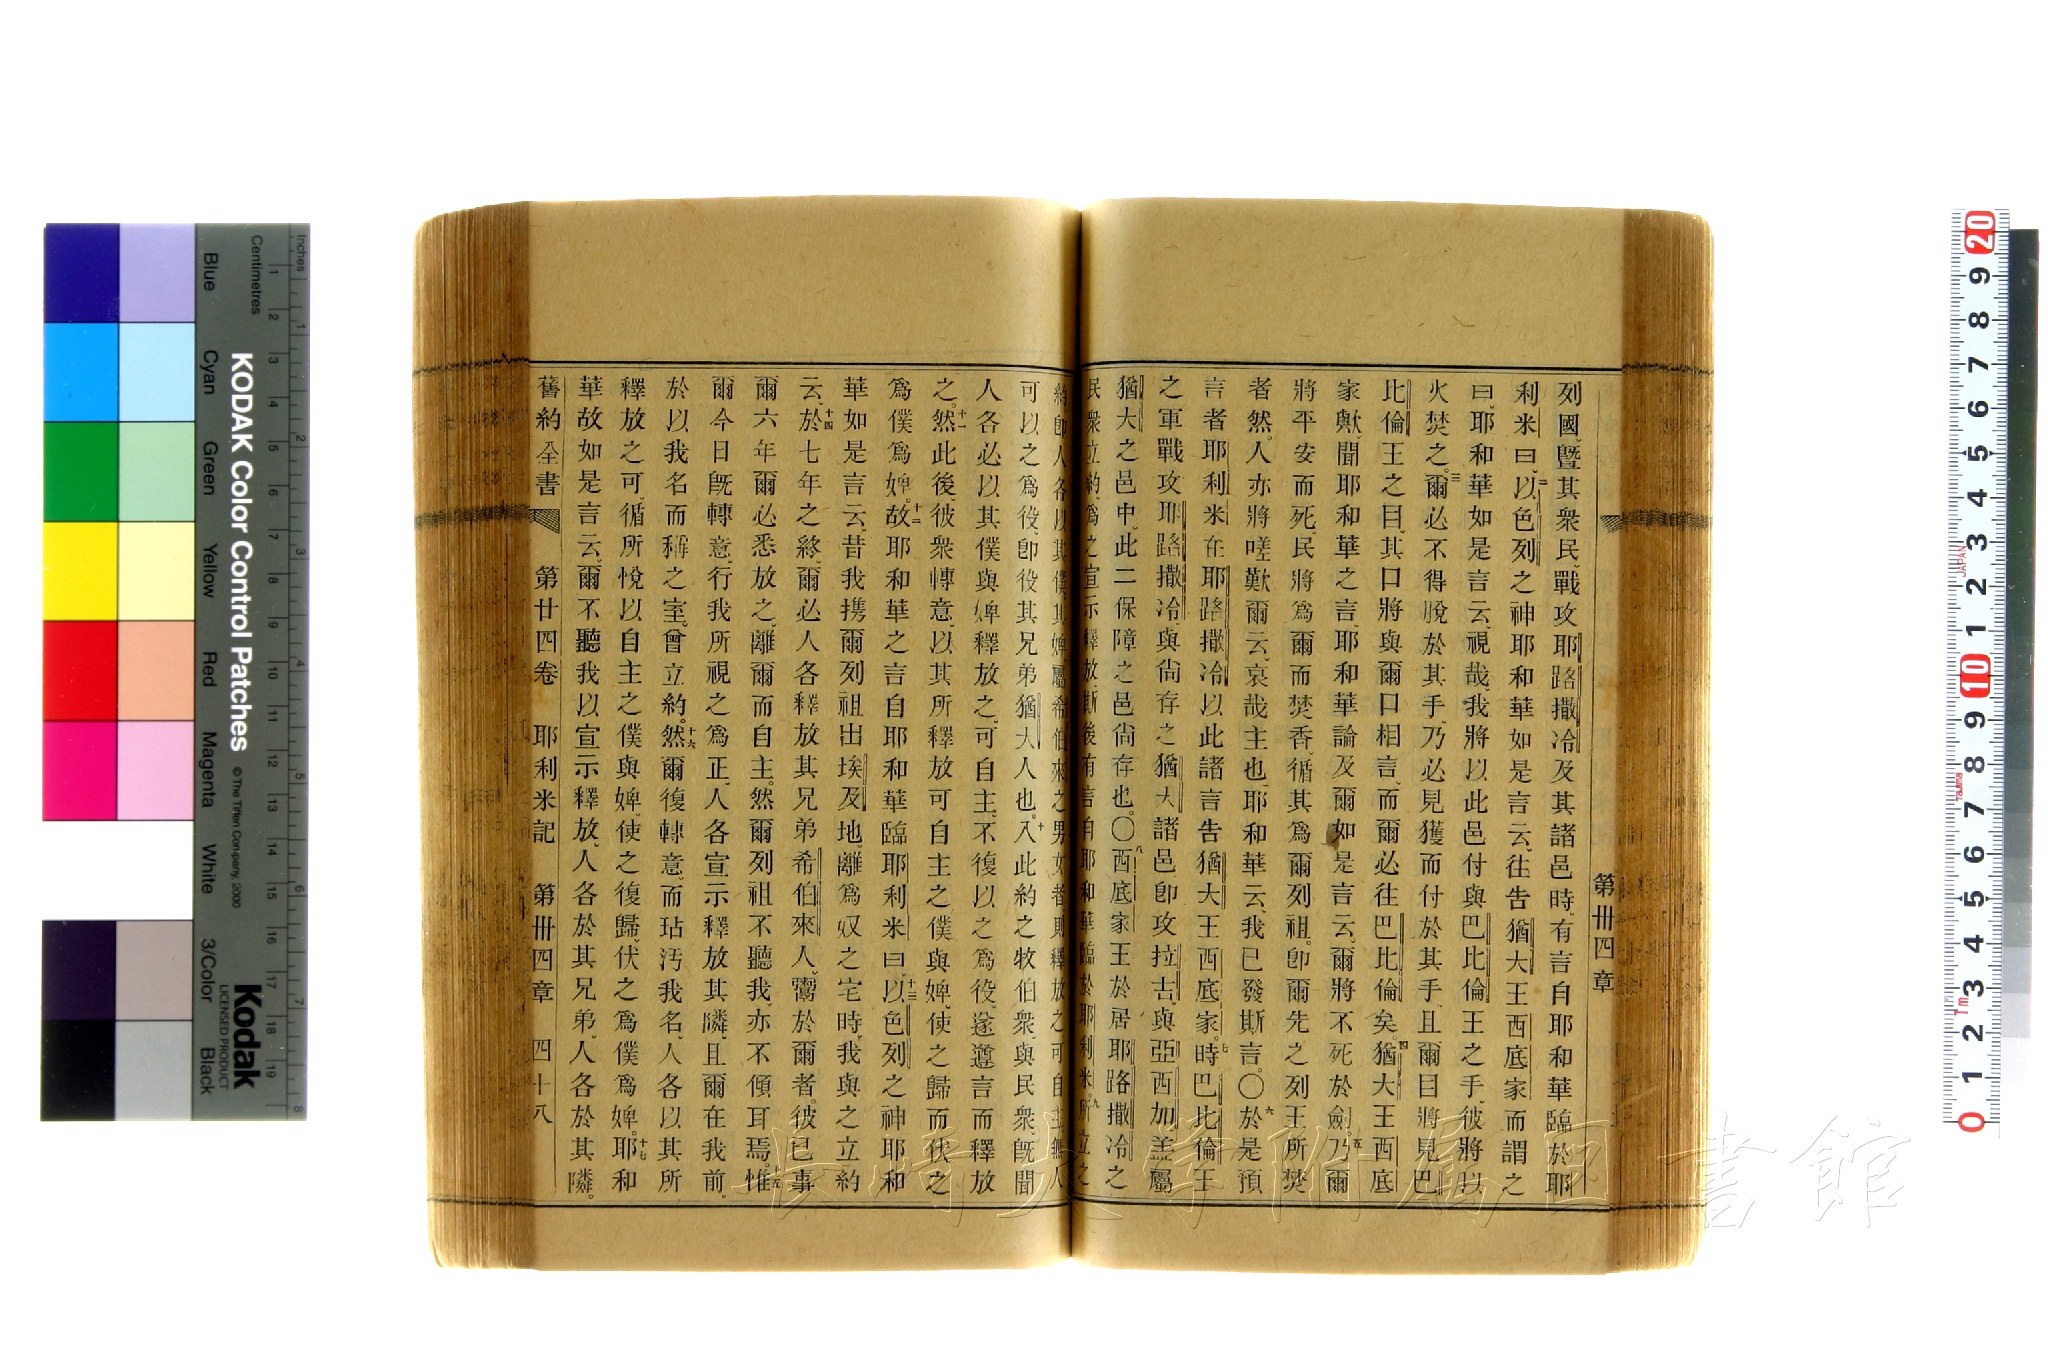 第卌四章
列國、曁其衆民、戰攻耶路撒冷及其諸邑時、有言自耶和華臨於耶
利米曰、二以色列之神耶和華如是言云、往告猶大王西底家而謂之
曰、耶和華如是言云、視哉、我將以此邑付與巴比倫王之手、彼將以
火焚之。三爾必不得脫於其手、乃必見獲而付於其手、且爾目將見巴
比倫王之目、其口將與爾口相言、而爾必往巴比倫矣。四猶大王西底
家歟、聞耶和華之言、耶和華論及爾如是言云、爾將不死於劍。五乃爾
將平安而死、民將爲爾而焚香、循其爲爾列祖。卽爾先之列王所焚
者然。人亦將嗟歎爾云、哀哉主也、耶和華云、我已發斯言。〇六於是預
言者耶利米在耶路撒冷以此諸言告猶大王西底家。七時巴比倫王
之軍戰攻耶路撒冷、與尙存之猶大諸邑卽攻拉吉、與亞西加、盖屬
猶大之邑中、此二保障之邑尙存也。〇八西底家王於居耶路撒冷之
民衆立約、爲之宣示釋放、斯後有言自耶和華臨於耶利米。九所立之
約卽人各以其僕、其婢、屬希伯來之男女者、則釋放之可自主、無人
可以之爲役、卽役其兄弟猶大人也。十入此約之牧伯衆、與民衆、旣聞
人各必以其僕與婢釋放之、可自主、不復以之爲役、遂遵言而釋放
之。十一然此後、彼衆轉意、以其所釋放可自主之僕與婢、使之歸而伏之
爲僕爲婢。十二故耶和華之言自耶和華臨耶利米曰、十三以色列之神耶和
華如是言云、昔我攜爾列祖出埃及地、離爲奴之宅時、我與之立約
云、十四於七年之終、爾必人各釋放其兄弟希伯來人、鬻於爾者。彼已事
爾六年、爾必悉放之、離爾而自主。然爾列祖不聽我、亦不傾耳焉。十五惟
爾今日旣轉意、行我所視之爲正、人各宣示釋放其隣、且爾在我前、
於以我名而稱之室。曾立約。十六然爾復轉意、而玷汚我名、人各以其所
釋放之可循所悅以自主之僕與婢、使之復歸、伏之爲僕爲婢。十七耶和
華故如是言云、爾不聽我以宣示釋放、人各於其兄弟、人各於其隣。
舊約全書　第廿四卷　耶利米記　第卌四章　四十八
KODAK Color Control Patches
© The Tiffen Company, 2000
Kodak
LICENSED PRODUCT
Inches
Centimetres
Blue
Cyan
Green
Yellow
Red
Magenta
White
3/Color
Black
長崎大学附属図書館
JAPAN
Tajima